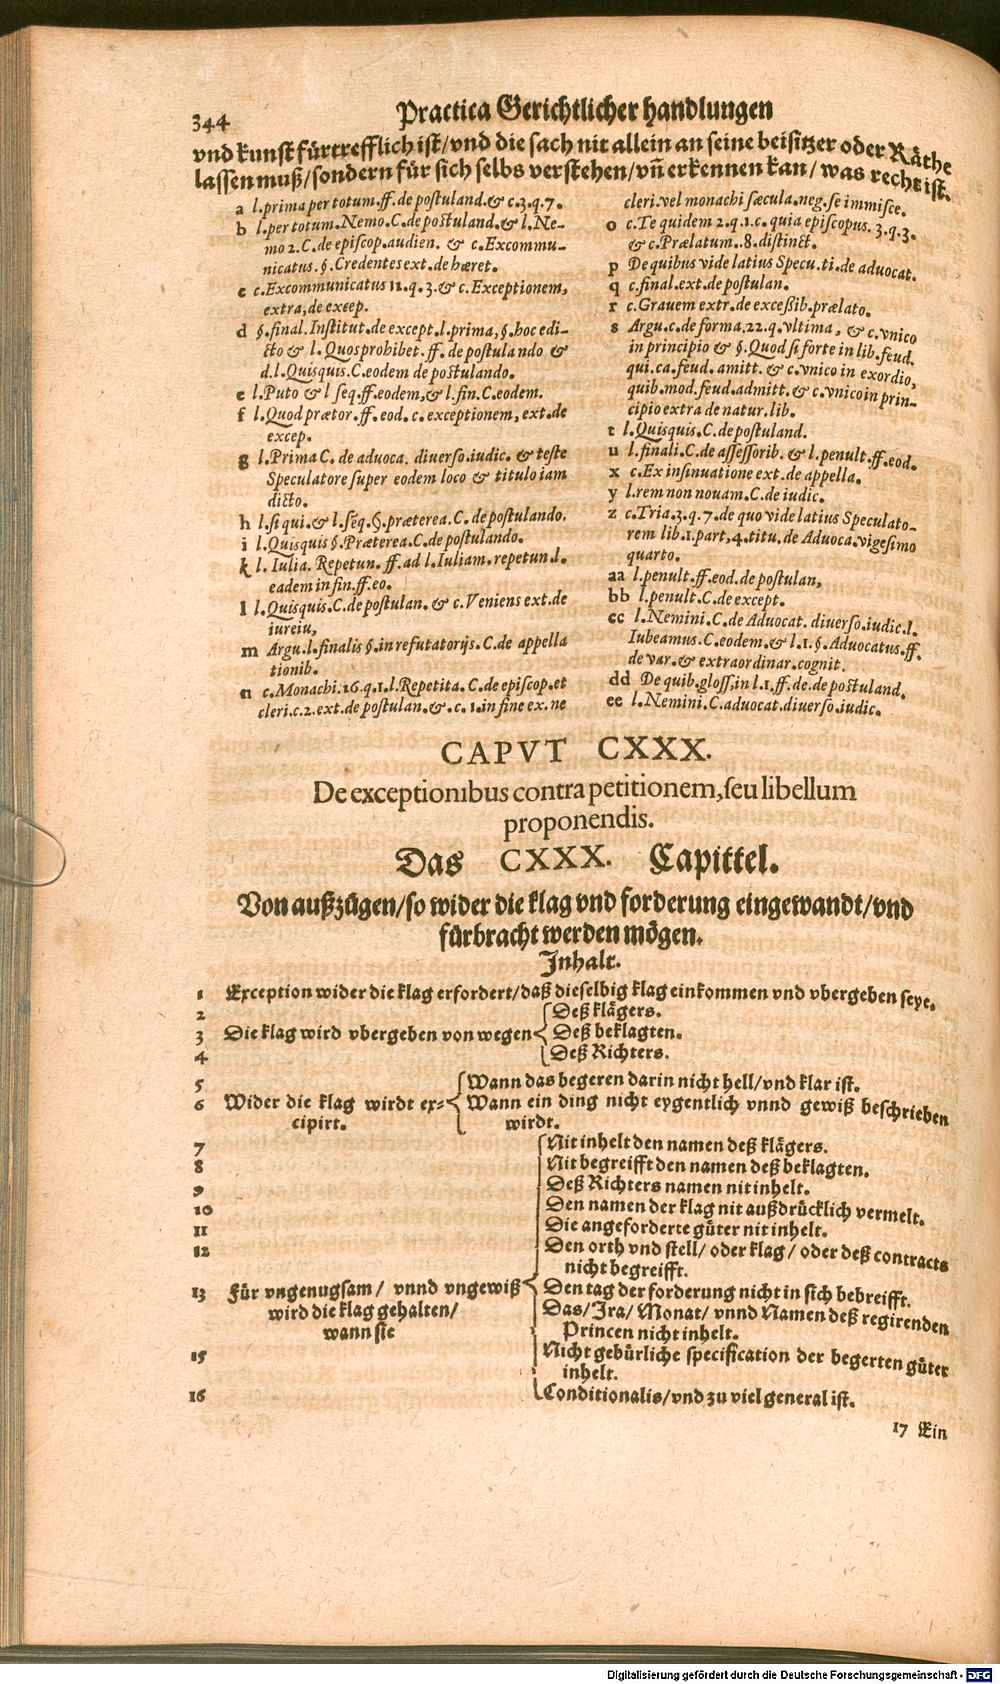 344
Practica Gerichtlicher handlungen
vnd kunst fürtrefflich ist/vnd die sach nit allein an seine beisitzer oder Räthe
lassen muß/sondern für sich selbs verstehen/vñ erkennen kan/was recht ist.
a l.prima per totum.ff.de postuland.& c.3.q.7.
b l.per totum.Nemo.C.de postuland.& l.Ne-
mo 2.C.de episcop.audien. & c.Excommu-
nicatus.§.Credentes ext.de hæret.
c c.Excommunicatus 11.q.3.& c.Exceptionem,
extra,de excep.
d §.final.Institut.de except.l.prima,§.hoc edi-
cto & l.Quos prohibet.ff.de postulando &
d.l.Quisquis.C.eodem de postulando.
e l.Puto & l seq.ff.eodem,& l.fin.C.eodem.
f l.Quod prætor.ff.eod.c.exceptionem,ext.de
excep.
g l.Prima C.de aduoca. diuerso.iudic. & teste
Speculatore super eodem loco & titulo iam
dicto.
h l.si qui.& l.seq.§.præterea.C.de postulando.
i l.Quisquis §.Præterea.C.de postulando.
k l.Iulia. Repetun. ff.ad l.Iuliam.repetun.l.
eadem in fin.ff.eo.
l l.Quisquis.C.de postulan. & c.Veniens ext.de
iureiu,
m Argu.l.finalis §.in refutatorijs.C.de appella
tionib.
n c.Monachi.16.q.1.l.Repetita.C.de episcop.et
cleri.c.2.ext.de postulan.&.c.1.in fine ex.ne
cleri.vel monachi sæcula.neg.se immisce.
o c.Te quidem 2.q.1.c.quia episcopus.3.q.3.
& c.Prælatum.8.distinct.
p De quibus vide latius Specu.ti.de aduocat.
q c.final.ext.de postulan.
r c.Grauem extr.de exceßib.prælato.
s Argu.c.de forma.22.q.vltima, & c.vnico
in principio & §.Quod si forte in lib.feud.
qui.ca.feud. amitt. & c.vnico in exordio,
quib.mod.feud.admitt.& c.vnico in prin-
cipio extra de natur.lib.
t l.Quisquis.C.de postuland.
u l.finali.C.de assessorib. & l.penult.ff.eod.
x c.Ex insinuatione ext.de appella.
y l.rem non nouam.C.de iudic.
z c.Tria.3.q.7.de quo vide latius Speculato-
rem lib.1.part,4.titu.de Aduoca.vigesimo
quarto.
aa l.penult.ff.eod.de postulan,
bb l.penult.C.de except.
cc l.Nemini.C.de Aduocat. diuerso.iudic.l.
Iubeamus.C.eodem.& l.1.§.Aduocatus.ff.
de var.& extraordinar.cognit.
dd De quib.gloss.in l.1.ff.de.de postuland.
ee l.Nemini.C.aduocat.diuerso.iudic.
CAPVT CXXX.
De exceptionibus contra petitionem, seu libellum
proponendis.
Das CXXX. Capittel.
Von außzügen/so wider die klag vnd forderung eingewandt/vnd
fürbracht werden mögen.
Inhalt.
1 Exception wider die klag erfordert/daß dieselbig klag einkommen vnd vbergeben seye.
2 Deß klägers.
3 Die klag wird vbergeben von wegen Deß beklagten.
4 Deß Richters.
5 Wann das begeren darin nicht hell/vnd klar ist.
6 Wider die klag wirdt ex= Wann ein ding nicht eygentlich vnnd gewiß beschrieben
cipirt. wirdt.
7 Nit inhelt den namen deß klägers.
8 Nit begreifft den namen deß beklagten.
9 Deß Richters namen nit inhelt.
10 Den namen der klag nit außdrücklich vermelt.
11 Die angeforderte güter nit inhelt.
12 Den orth vnd stell/ oder klag/ oder deß contracts
nicht begreifft.
13 Für vngenugsam/ vnnd vngewiß Den tag der forderung nicht in sich bebreifft.
wird die klag gehalten/ Das/Jra/Monat/ vnnd Namen deß regirenden
wann sie Princen nicht inhelt.
15 Nicht gebürliche specification der begerten güter
inhelt.
16 Conditionalis/vnd zu viel general ist.
17 Ein
Digitalisierung gefördert durch die Deutsche Forschungsgemeinschaft - DFG